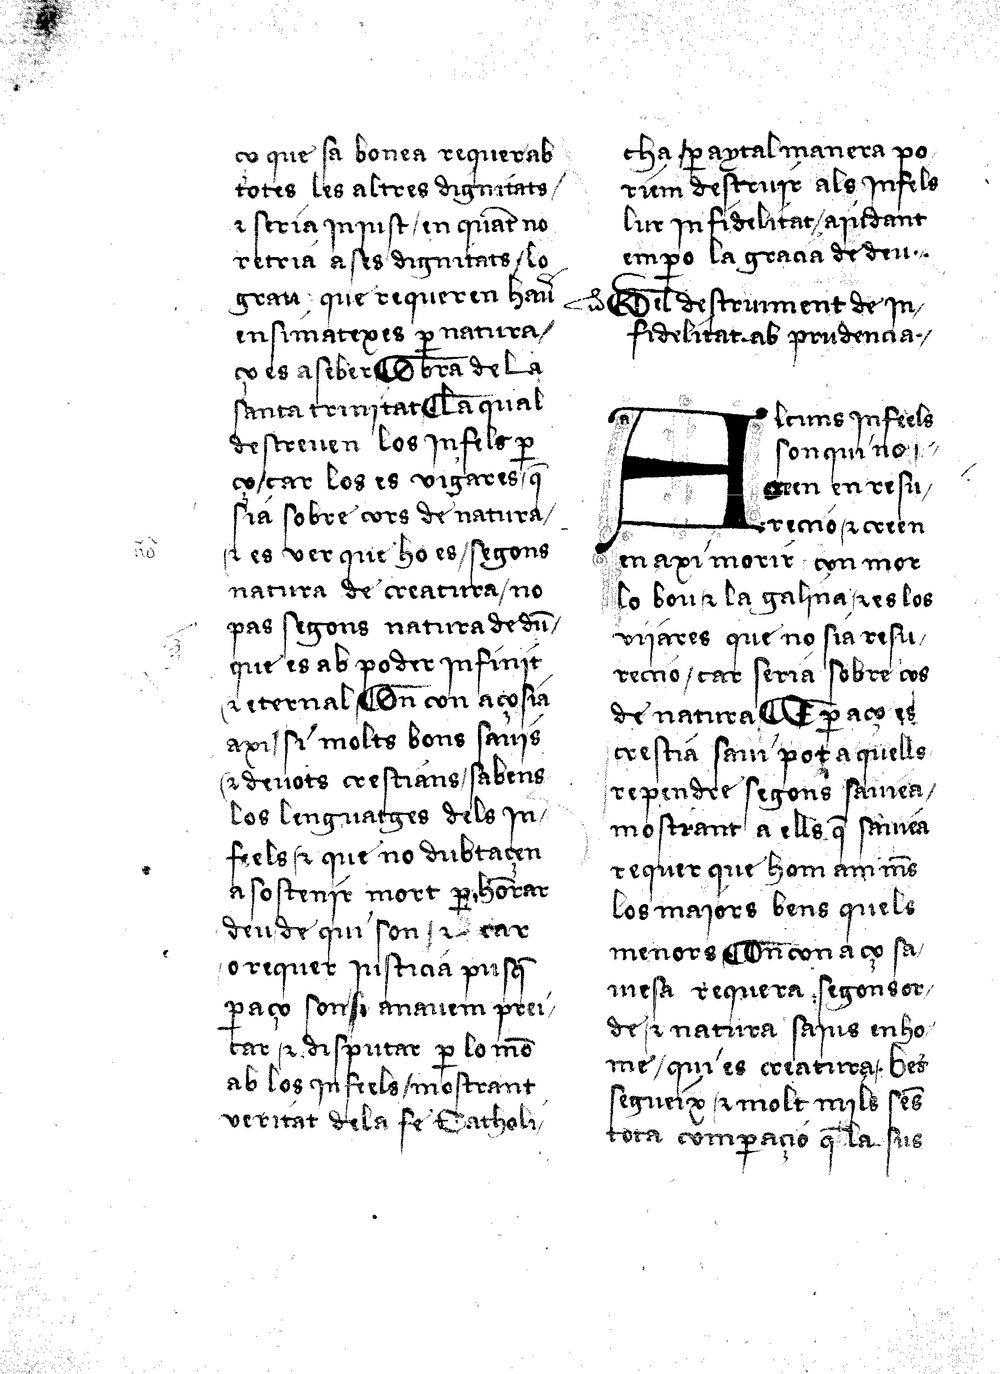 ço que sa bonea requer ab
totes les altres dignitats /
⁊ seria injust / en quāt no
retria a ses dignitats / lo
grau que requeren hauer
en si matexes ꝑ natura /
ço es a seber Obra de La
santa trinitat La qual
destreuen los infels ꝑ
ço / car los es vigares / q̄
sia sobre cors de natura /
⁊ es ver que ho es / segons
natura de creatura / no
pas segons natura de dū /
que es ab poder infinit
⁊ eternal On con aço sia
axi / si molts bons sauis
⁊ deuots crestians / sabens
los lenguatges dels in /
feels / ⁊ que no dubtaçen
a sostenir mort ꝑ hōrar
deu de qui son / ⁊ car
o requer justicia pusq̄
ꝑ aço sons anauem prei /
car ⁊ disputar ꝑ lo mō
ab los infeels / mostrant
veritat dela fe Catholi /
cha / ꝑ aytal manera po
riem destruir als infels
lur infidelitat / ajudant
em ꝑo la gracia de deu
Del destruiment de in /
fidelitat ab prudencia
Alcuns infeels
son qui no
creen en resu /
reccio / ⁊ creen
en axi morir con mor
lo bou ⁊ la galina / ⁊ es los
vijares que no sia resu /
reccio / car seria sobre cos
de natura E ꝑ aço es
crestia saui pot aquells
rependre segons sauiea /
mostrant a ells q̄ sauiea
requer que hom am mēs
los majors bens quels
menors On con aço sa /
uiesa requera segons or /
de ⁊ natura sajus en ho
me / qui es creatura
segueix ⁊ molt mils sēs
tota comꝑacio q̄ la sus